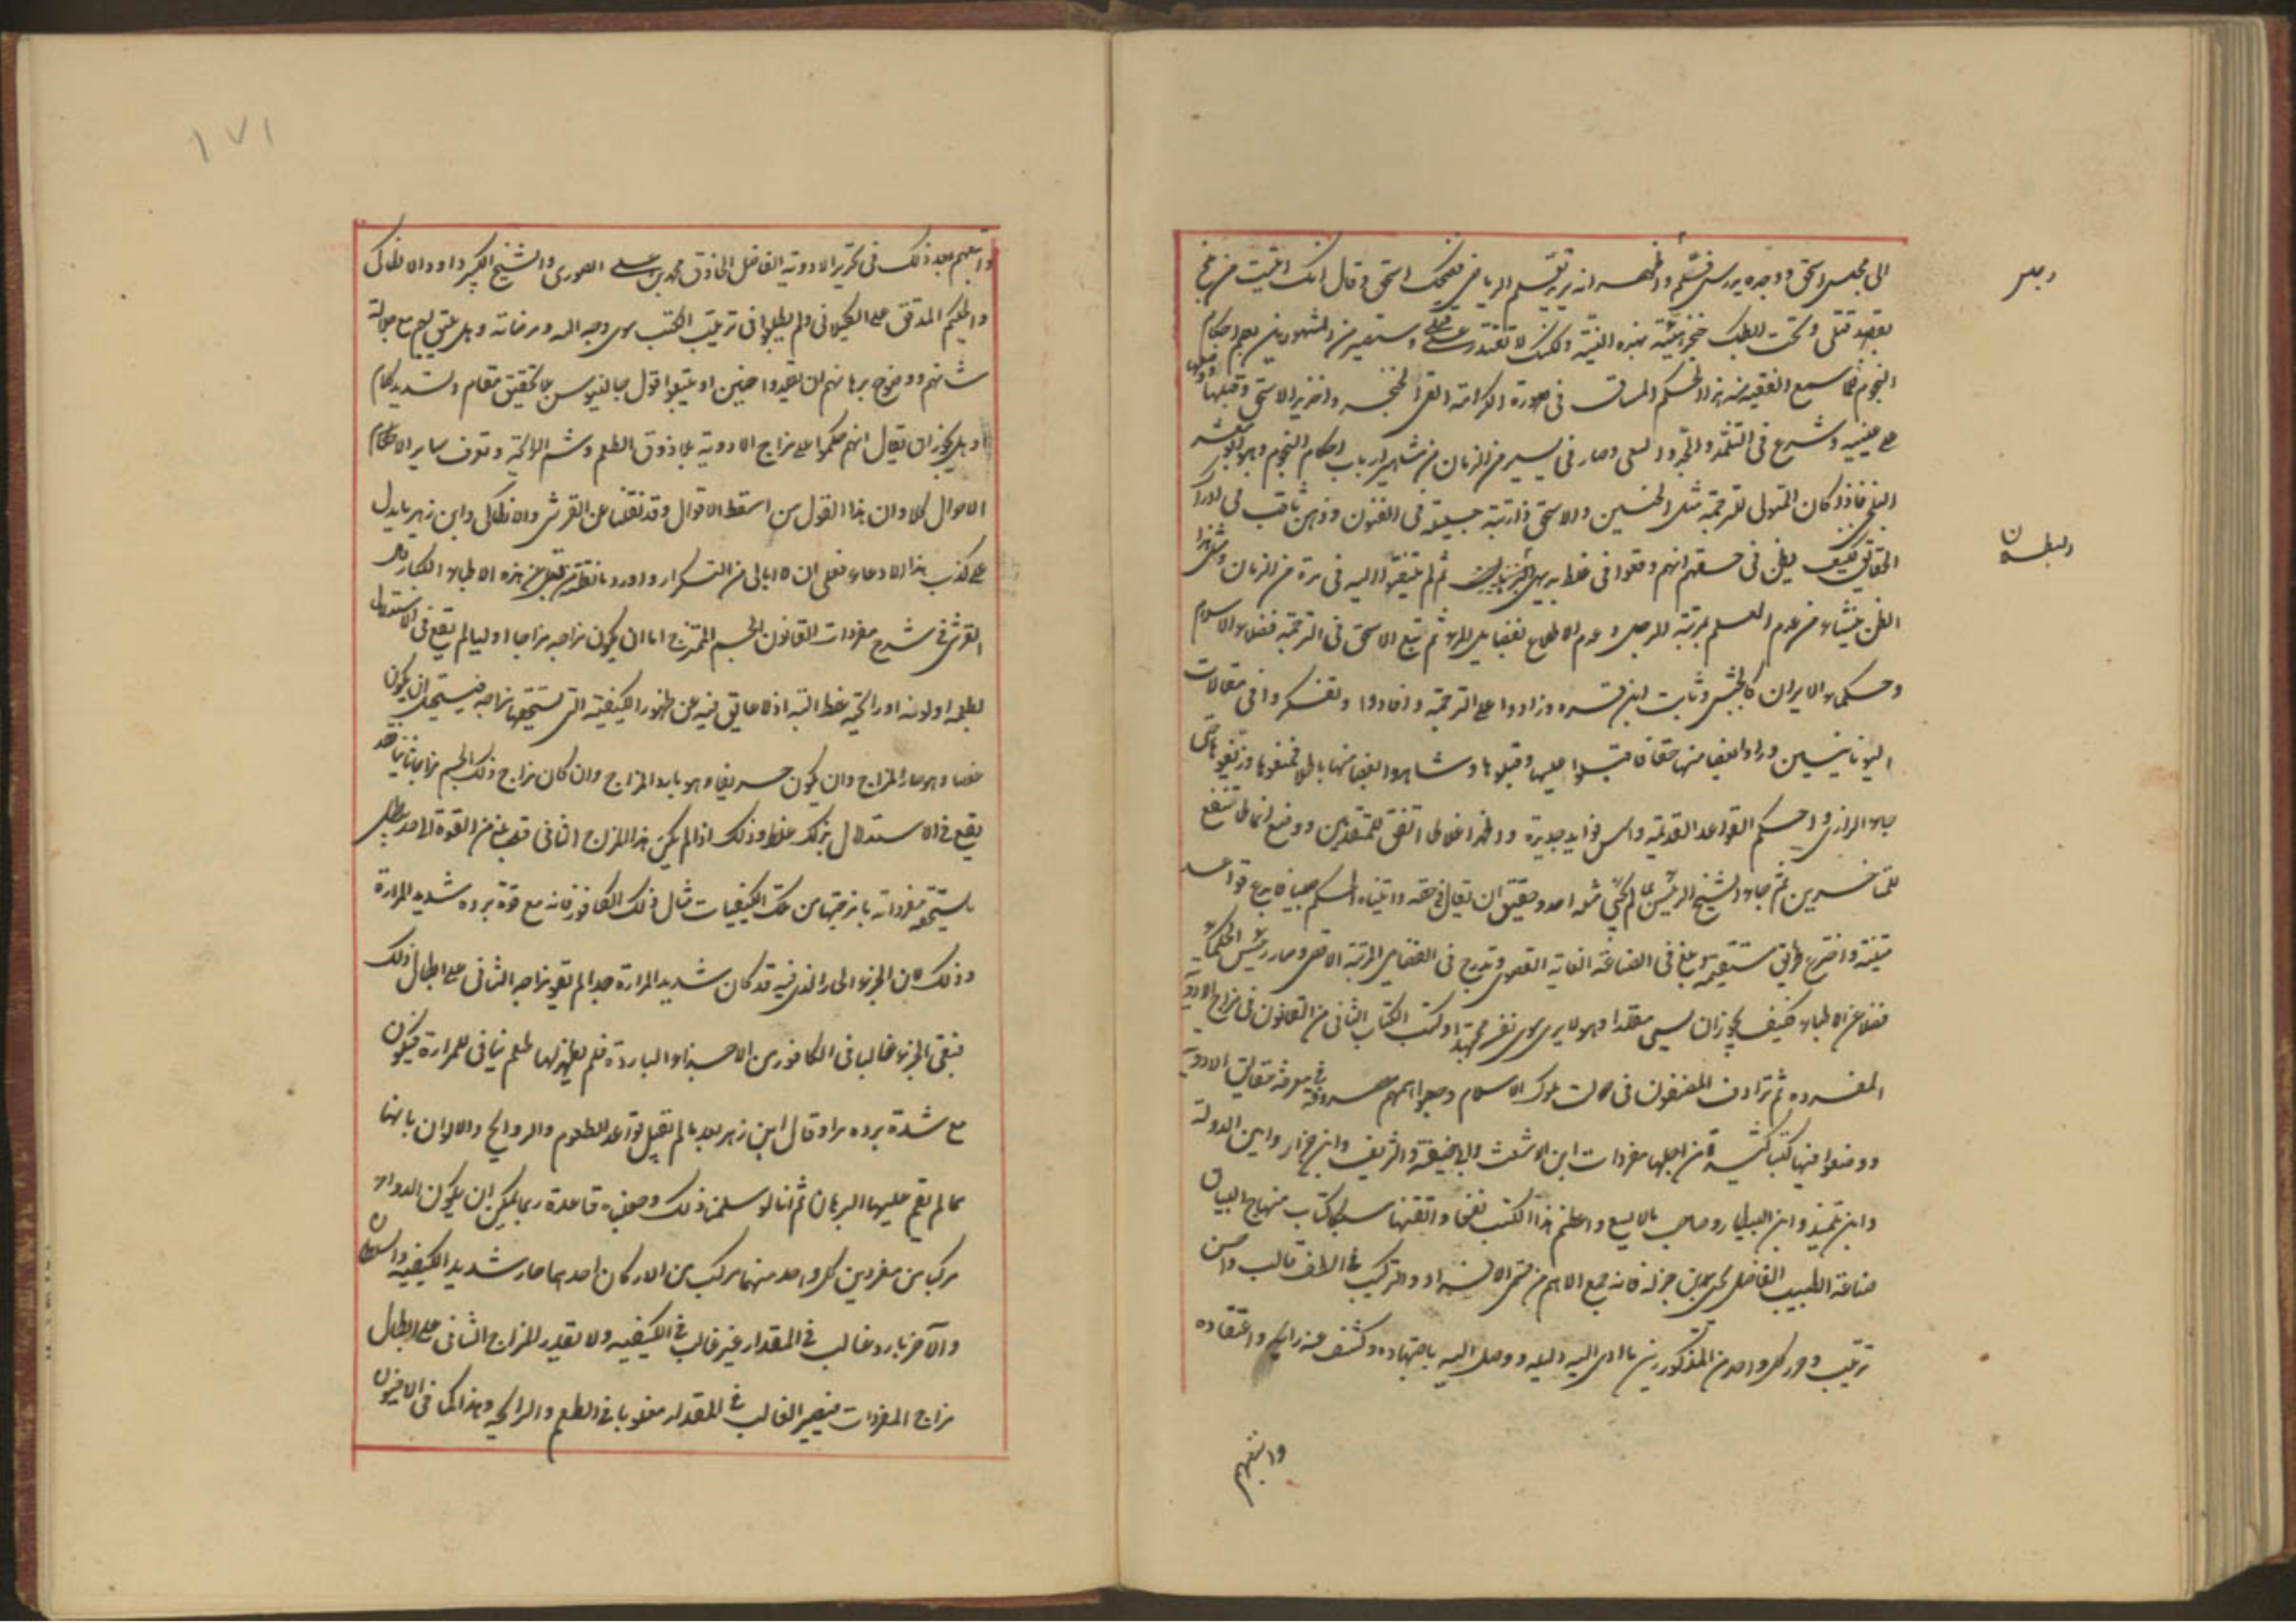 الى مجلس اسحق ووجده يدرس فسلم واظهر انه يريد تعلم الرياضى فضحك اسحق وقال انك اتيت من بلخ
بقصد قتلى وتحت ابطك خنجر هيئته بهذه النية ولكنك لا تقتدر على قتلى وستصير من المشهورين بعلم احكام
النجوم فلما سمع الفقيه منه هذا الحكم المساق فى صورة الكرامة القى الخنجر واخذ يد الاسحق وقبلها ووضعها
على عينيه وشرع فى التلمذ والجد والسعى وصار فى يسير من الزمان من مشاهير ارباب احكام النجوم وهو ابو معشر
البلخى فاذا كان المتولى للترجمة مثل الحنين والاسحق ذا رتبة جليلة فى الفنون وذهن ثاقب فى ادراك
الحقايق كيف يظن فى حقهم انهم وقعوا فى غلط بديهى ثم لم يتفقدوا اليه فى مدة من الزمان ومثل هذا
الظن ينشاء من عدم العلم بمرتبة الرجل وعدم الاطلاع بفضايل المرء ثم تبع الاسحق فى الترجمة فضلاء الاسلام
وحكماء الايران كالحبش وثابت ابن قره وزادوا على الترجمة وافادوا وتفكروا فى مقالات
اليونانيين وراوا بعضا منها حقا فاقبلوا عليها وقبلوها وشاهدوا بعضا منها باطلا فمنعوها وزيفوها حتى
جاء الرازى واحكم القواعد القديمة واسس فوايد جديدة واظهر اغلاط اتفق للمتقدمين ووضع انماطا تنفع
للمتاخرين ثم جاء الشيخ الرئيس بما لم يجئ مثله احد وحقيق ان يقال فى حقه واتيناه الحكم صبيا فابدع قواعد
متينة واخترع طرايق مستقيمة وبلغ فى الصناعة الغاية القصوى وتدرج فى الفضايل المرتبة الاقصى وصار رئيس الحكماء
فضلا عن الاطباء فكيف يجوز ان يسمى مقلدا وهو لا يرى سوى نفسه مجتهدا وكتب الكتاب الثانى من القانون فى مزاج الادوية
المفرده ثم ترادف المصنفون فى ممالك ملوك الاسلام وجعلوا همهم مصروفة فى معرفة حقايق الادوية
ووضعوا فيها كتبا كثيرة من اجلها مفردات ابن الاشعث وابى حنيفة والشريف وابن جزار وابن الدولة
وابن تلميذ وابن البيطار وصاحب ما لا يسع واعظم هذا الكتب نفعا واتقنها سبكا كتاب منهاج البيان
صناعة الطبيب الفاضل يحيى بن جزله فانه جمع الاهم من قسمى الافراد والتركيب فى الطف قالب واحسن
ترتيب وحرر كل واحد من المذكورين ما ادى اليه دليله ووصل اليه باجتهاده وكشف عنه رايه واعتقاده
واتبعهم
١٧١
واتبعهم بعد ذلك فى تحرير الادوية الفاضل الحاذق محمد بن على الصورى والشيخ الكبير داود الانطاكى
والحكيم المدقق على الكيلانى ولم يطلبوا فى ترتيب الكتب سوى وجه الله ومرضاته وهل يليق بهم مع جلالة
شانهم ووضوح برهانهم ان تقلدوا حنين او يتبعوا قول جالينوس بلا تحقيق مقام وتشديد كلام
او هل يجوز ان يقال انهم حكموا على مزاج الادوية بلا ذوق الطعم وشم الرائحة وتعرف ساير الاحكام
الاحوال كلا وان هذا القول من اسقط الاقوال وقد نقلنا عن القرشى والانطاكى وابن زهر ما يدل
على كذب هذا الادعاء فعلى ان لا ابالى من التكرار واورد ما نقلته من قبل عن هذه الاطباء الكبار قال
القرشى فى شرح مفردات القانون الجسم الممتزج اما ان يكون مزاجه مزاجا اوليا لم يقع فى الاستدلال
بطعمه او لونه او رائحته غلط البتة اذ لا عايق فيه عن ظهور الكيفية التى تستحقها مزاجه فيستحيل ان يكون
عفصا وهو حار المزاج وان يكون حريفا وهو بارد المزاج وان كان مزاج ذلك الجسم مزاجا ثانيا فقد
يقع فى الاستدلال بذلك غلط وذلك اذا لم يكن هذا المزاج الثانى قد بلغ من القوة الى حد يبطل
ما يستحقه مفرداته بامزجتها من تلك الكيفيات مثال ذلك الكافور فانه مع قوة برده شديد المرارة
وذلك لان الجزء الحار الذى فيه قد كان شديد المرارة جدا لم تقو مزاجه الثانى على ابطال ذلك
فبقى الجزء غالبا فى الكافور من الاجزاء الباردة فلم يظهر لها طعم ينافى للمرارة فيكون
مع شدة برده مرا وقال ابن زهر بعد ما لم تقبل قواعد الطعوم والروايح والالوان بانها
مما لم تقم عليها البرهان ثم انا لو سلمنا ذلك وجعلناه قاعدة ربما يمكن ان يكون الدواء
مركبا من مفردين كل واحد منهما مركب من الاركان احدهما حار شديد الكيفيه
والآخر بارد غالب فى المقدار غير غالب فى الكيفيه ولا تقدر المزاج الثانى على ابطال
مزاج المفردات فيصير الغالب فى المقدار مغلوبا فى الطعم والرائحه وهذا كما فى الافيون